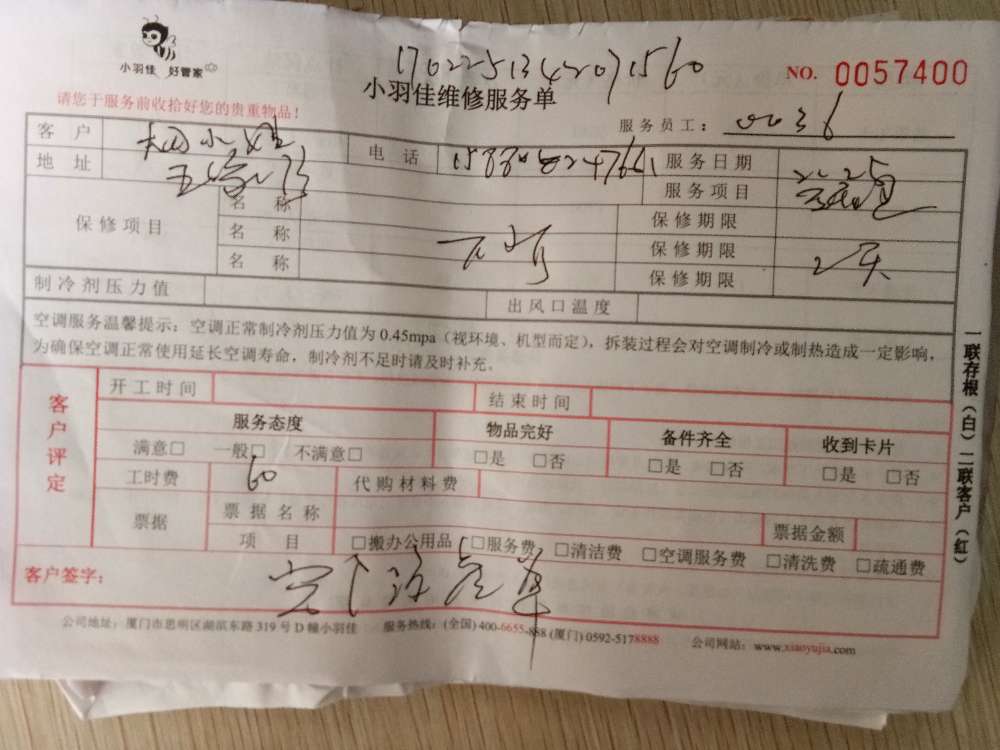 小羽佳 好管家
1702251342071560
NO. 0057400
小羽佳维修服务单
请您于服务前收拾好您的贵重物品！
服务员工： 0036
客 户 小姐 电 话 服务日期 2.25
地 址 服务项目
保修项目 名 称 保修期限
名 称 保修期限
名 称 保修期限
制冷剂压力值 出风口温度
空调服务温馨提示：空调正常制冷剂压力值为 0.45mpa（视环境、机型而定），拆装过程会对空调制冷或制热造成一定影响，
为确保空调正常使用延长空调寿命，制冷剂不足时请及时补充。
客户评定
开工时间 结束时间
服务态度 物品完好 备件齐全 收到卡片
满意□ 一般□ 不满意□ □是 □否 □是 □否 □是 □否
工时费 60 代购材料费
票据 票据名称 票据金额
项 目 □搬办公用品 □服务费 □清洁费 □空调服务费 □清洗费 □疏通费
客户签字：
公司地址：厦门市思明区湖滨东路 319 号 D 幢小羽佳 服务热线：(全国) 400-6655-888 (厦门) 0592-5178888 公司网站：www.xiaoyujia.com
一联存根（白）二联客户（红）